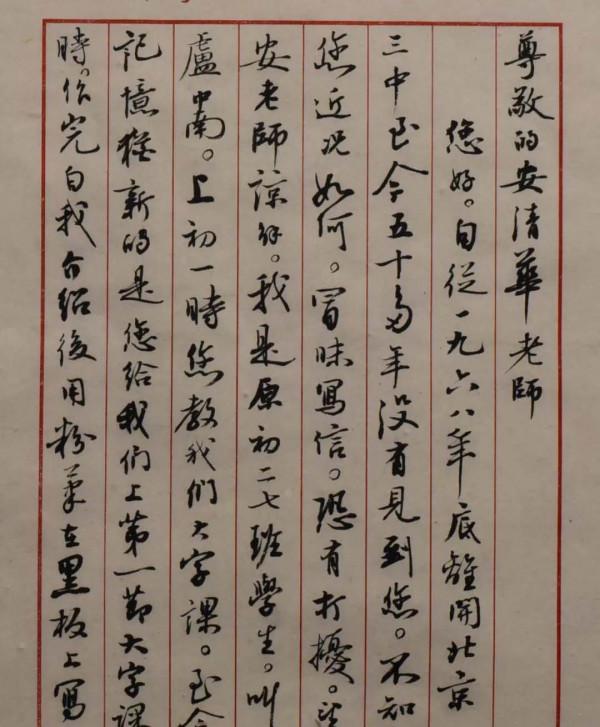 尊敬的安清華老師
您好。自從一九六八年底離開北京
三中至今五十多年没有見到您。不知
您近况如何。冒昧寫信。恐有打擾。望
安老師諒解。我是原初二七班學生。叫
盧中南。上初一時您教我們大字課。至今
記憶猶新的是您給我們上第一節大字課
時。您完自我介紹後用粉筆在黑板上寫